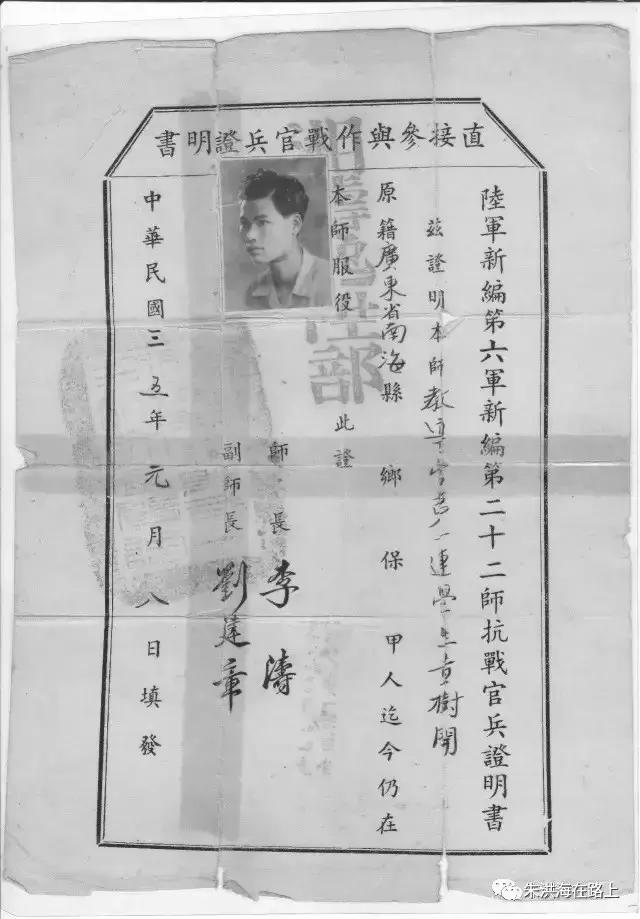 直接參與作戰官兵證明書
陸軍新編第六軍新編第二十二師抗戰官兵證明書
茲證明本師教導營第一連學生童樹開
原籍廣東省南海縣 鄉 保 甲人迄今仍在
本師服役 此證
師長 李濤
副師長 劉建章
中華民國三五年元月八日填發
朱洪海在路上